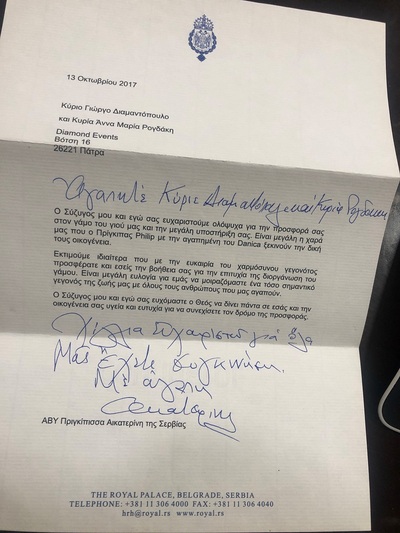 13 Οκτωβρίου 2017
Κύριο Γιώργο Διαμαντόπουλο
και Κυρία Άννα Μαρία Ρογδάκη
Diamond Events
Βότση 16
26221 Πάτρα
Αγαπητέ Κύριε Διαμαντόπουλε και Κυρία Ρογδάκη
Ο Σύζυγος μου και εγώ σας ευχαριστούμε ολόψυχα για την προσφορά σας
στον γάμο του γιού μας και την μεγάλη υποστήριξη σας. Είναι μεγάλη η χαρά
μας που ο Πρίγκιπας Philip με την αγαπημένη του Danica ξεκινούν την δική
τους οικογένεια.
Εκτιμούμε ιδιαίτερα που με την ευκαιρία του χαρμόσυνου γεγονότος
προσφέρατε και εσείς την βοήθεια σας για την επιτυχία της διοργάνωση του
γάμου. Είναι μεγάλη ευλογία για εμάς να μοιραζόμαστε ένα τόσο σημαντικό
γεγονός της ζωής μας με όλους τους ανθρώπους που μας αγαπούν.
Ο Σύζυγος μου και εγώ σας ευχόμαστε ο Θεός να δίνει πάντα σε εσάς και την
οικογένεια σας υγεία και ευτυχία για να συνεχίσετε τον δρόμο της προσφοράς.
Χίλια Ευχαριστώ για όλα
Μας έχετε συγκινήσει.
Με αγάπη
Αικατερίνη
ΑΒΥ Πριγκίπισσα Αικατερίνη της Σερβίας
THE ROYAL PALACE, BELGRADE, SERBIA
TELEPHONE: +381 11 306 4000 FAX: +381 11 306 4040
hrh@royal.rs www.royal.rs